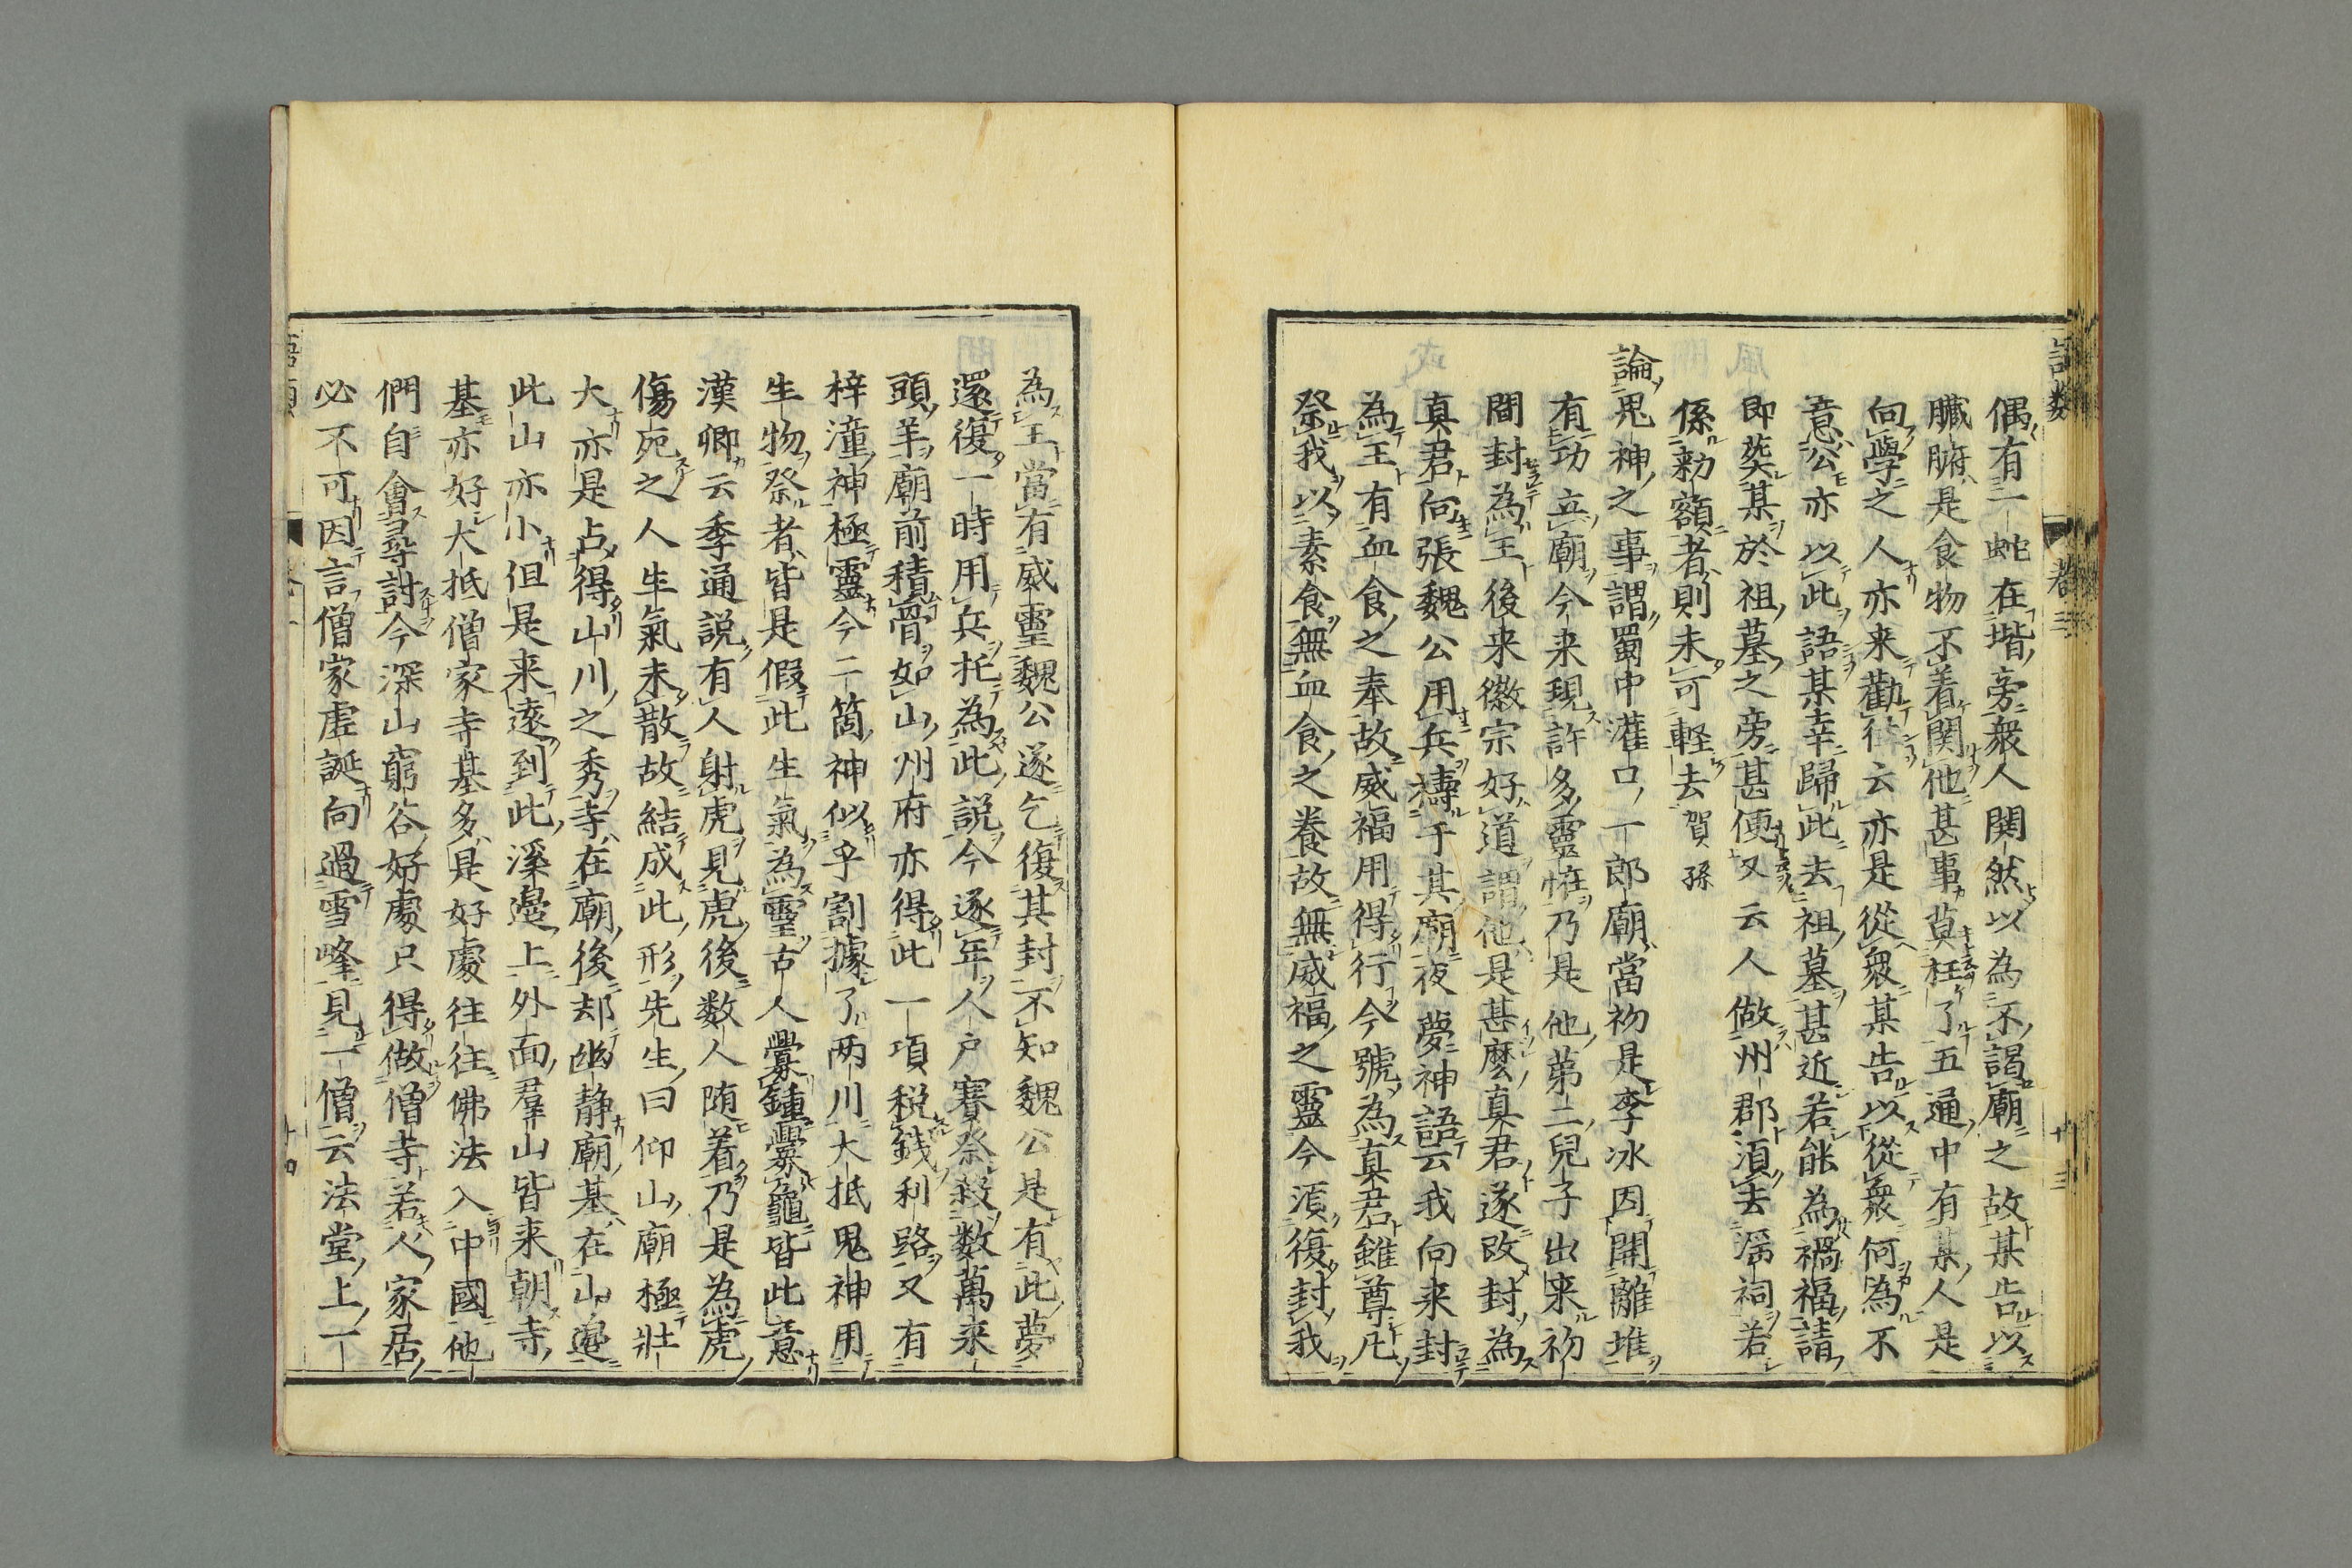 偶有一蛇在堦旁衆人閧然以為不謁廟之故某告以
臟腑是食物不着関他甚事莫枉了五通中有某人是
向學之人亦来勸往云亦是從衆某告以從衆何為不
意公亦以此語某幸歸此去祖墓甚近若能為禍福請
即葬某於祖墓之旁甚便又云人做州郡湏去淫祠若
係勑額者則未可軽去 賀孫
論鬼神之事謂蜀中灌口二郎廟當初是李冰因開離堆
有功立廟今来現許多靈恠乃是他第二兒子出来初
間封為王後来徽宗好道謂他是甚麼真君遂改封為
真君向張魏公用兵禱于其廟夜夢神語云我向来封
為王有血食之奉故威福用得行今號為真君雖尊凡
祭我以素食無血食之養故無威福之靈今湏復封我
為王當有威靈魏公遂乞復其封不知魏公是有此夢
還復一時用兵托為此説今逐年人戸賽祭殺数萬来
頭羊廟前積骨如山州府亦得此一項税銭利路又有
梓潼神極靈今二箇神似乎割據了两川大抵鬼神用
生物祭者皆是假此生氣為靈古人釁鍾釁龜皆此意
漢卿云季通説有人射虎見虎後数人随着乃是為虎
傷死之人生氣未散故結成此形先生曰仰山廟極壯
大亦是占得山川之秀寺在廟後却幽静廟基在山邉
此山亦小但是来遠到此溪邉上外面羣山皆来朝寺
基亦好大抵僧家寺基多是好處往往佛法入中國他
們自會尋討今深山窮谷好處只得做僧寺若人家居
必不可因言僧家虚誕向過雪峰見一僧云法堂上一